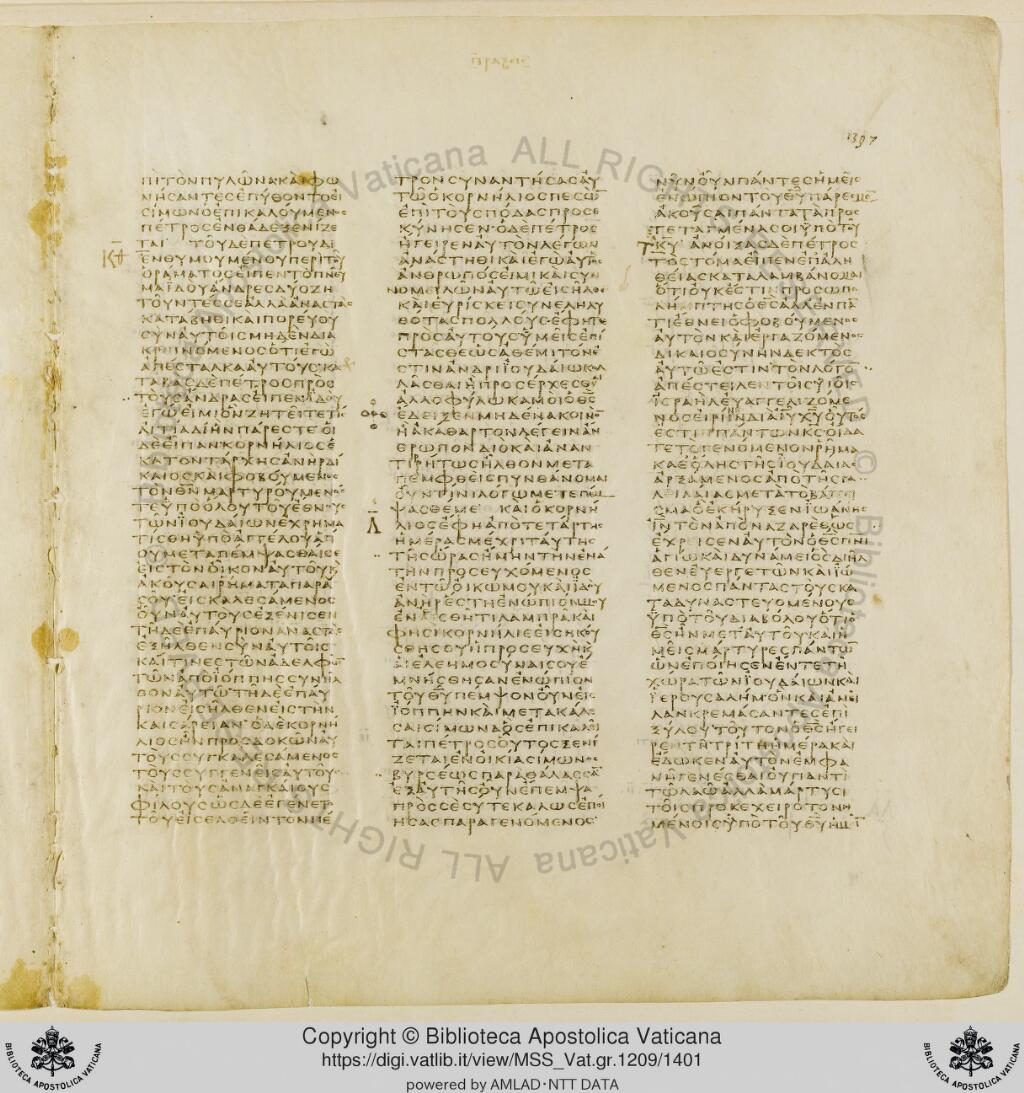 ΠΙΤΟΝΠΥΛΩΝΑΚΑΙΦΩ
ΝΗϹΑΝΤΕϹΕΠΥΘΟΝΤΟΕΙ
ϹΙΜΩΝΟΕΠΙΚΑΛΟΥΜΕΝΟϹ
ΠΕΤΡΟϹΕΝΘΑΔΕΞΕΝΙΖΕ
ΤΑΙ ΤΟΥΔΕΠΕΤΡΟΥΔΙ
ΕΝΘΥΜΟΥΜΕΝΟΥΠΕΡΙΤΟΥ
ΟΡΑΜΑΤΟϹΕΙΠΕΝΤΟΠΝΕΥ
ΜΑΙΔΟΥΑΝΔΡΕϹΔΥΟΖΗ
ΤΟΥΝΤΕϹϹΕΑΛΛΑΑΝΑϹΤΑϹ
ΚΑΤΑΒΗΘΙΚΑΙΠΟΡΕΥΟΥ
ϹΥΝΑΥΤΟΙϹΜΗΔΕΝΔΙΑ
ΚΡΕΙΝΟΜΕΝΟϹΟΤΙΕΓΩ
ΑΠΕϹΤΑΛΚΑΑΥΤΟΥϹΚΑ
ΤΑΒΑϹΔΕΠΕΤΡΟϹΠΡΟϹ
ΤΟΥϹΑΝΔΡΑϹΕΙΠΕΝΙΔΟΥ
ΕΓΩΕΙΜΙΟΝΖΗΤΕΙΤΕΤΙϹΗ
ΑΙΤΙΑΔΙΗΝΠΑΡΕϹΤΕΟΙ
ΔΕΕΙΠΑΝΚΟΡΝΗΛΙΟϹΕ
ΚΑΤΟΝΤΑΡΧΗϹΑΝΗΡΔΙ
ΚΑΙΟϹΚΑΙΦΟΒΟΥΜΕΝΟϹ
ΤΟΝΘΝΜΑΡΤΥΡΟΥΜΕΝΟϹ
ΤΕΥΠΟΟΛΟΥΤΟΥΕΘΝΟΥϹ
ΤΩΝΙΟΥΔΑΙΩΝΕΧΡΗΜΑ
ΤΙϹΘΗΥΠΟΑΓΓΕΛΟΥΑΓΙ
ΟΥΜΕΤΑΠΕΜΨΑϹΘΑΙϹΕ
ΕΙϹΤΟΝΟΙΚΟΝΑΥΤΟΥΚΑΙ
ΑΚΟΥϹΑΙΡΗΜΑΤΑΠΑΡΑ
ϹΟΥΕΙϹΚΑΛΕϹΑΜΕΝΟϹ
ΟΥΝΑΥΤΟΥϹΕΞΕΝΙϹΕΝ
ΤΗΔΕΕΠΑΥΡΙΟΝΑΝΑϹΤΑϹ
ΕΞΗΛΘΕΝϹΥΝΑΥΤΟΙϹ
ΚΑΙΤΙΝΕϹΤΩΝΑΔΕΛΦΩΝ
ΤΩΝΑΠΟΙΟΠΠΗϹϹΥΝΗΛ
ΘΟΝΑΥΤΩΤΗΔΕΕΠΑΥ
ΡΙΟΝΕΙϹΗΛΘΕΝΕΙϹΤΗΝ
ΚΑΙϹΑΡΕΙΑΝΟΔΕΚΟΡΝΗ
ΛΙΟϹΗΝΠΡΟϹΔΟΚΩΝΑΥ
ΤΟΥϹϹΥΓΚΑΛΕϹΑΜΕΝΟϹ
ΤΟΥϹϹΥΓΓΕΝΕΙϹΑΥΤΟΥ
ΚΑΙΤΟΥϹΑΝΑΓΚΑΙΟΥϹ
ΦΙΛΟΥϹΩϹΔΕΕΓΕΝΕΤΟ
ΤΟΥΕΙϹΕΛΘΕΙΝΤΟΝΠΕ
ΤΡΟΝϹΥΝΑΝΤΗϹΑϹΑΥ
ΤΩΟΚΟΡΝΗΛΙΟϹΠΕϹΩΝ
ΕΠΙΤΟΥϹΠΟΔΑϹΠΡΟϹΕ
ΚΥΝΗϹΕΝΟΔΕΠΕΤΡΟϹ
ΗΓΕΙΡΕΝΑΥΤΟΝΛΕΓΩΝ
ΑΝΑϹΤΗΘΙΚΑΙΕΓΩΑΥΤΟϹ
ΑΝΘΡΩΠΟϹΕΙΜΙΚΑΙϹΥΝ
ΟΜΕΙΛΩΝΑΥΤΩΕΙϹΗΛΘΕ
ΚΑΙΕΥΡΙϹΚΕΙϹΥΝΕΛΗΛΥ
ΘΟΤΑϹΠΟΛΛΟΥϹΕΦΗΤΕ
ΠΡΟϹΑΥΤΟΥϹΥΜΕΙϹΕΠΙ
ϹΤΑϹΘΕΩϹΑΘΕΜΙΤΟΝΕ
ϹΤΙΝΑΝΔΡΙΙΟΥΔΑΙΩΚΟΛ
ΛΑϹΘΑΙΗΠΡΟϹΕΡΧΕϹΘΑΙ
ΑΛΛΟΦΥΛΩΚΑΜΟΙΟΘϹ
ΕΔΕΙΞΕΝΜΗΔΕΝΑΚΟΙΝΟΝ
ΗΑΚΑΘΑΡΤΟΝΛΕΓΕΙΝΑΝ
ΘΡΩΠΟΝΔΙΟΚΑΙΑΝΑΝ
ΤΙΡΗΤΩϹΗΛΘΟΝΜΕΤΑ
ΠΕΜΦΘΕΙϹΠΥΝΘΑΝΟΜΑΙ
ΟΥΝΤΙΝΙΛΟΓΩΜΕΤΕΠΕΜ
ΨΑϹΘΕΜΕ ΚΑΙΟΚΟΡΝΗ
ΛΙΟϹΕΦΗΑΠΟΤΕΤΑΡΤΗϹ
ΗΜΕΡΑϹΜΕΧΡΙΤΑΥΤΗϹ
ΤΗϹΩΡΑϹΗΜΗΝΤΗΝΕΝΑ
ΤΗΝΠΡΟϹΕΥΧΟΜΕΝΟϹ
ΕΝΤΩΟΙΚΩΜΟΥΚΑΙΙΔΟΥ
ΑΝΗΡΕϹΤΗΕΝΩΠΙΟΝΜΟΥ
ΕΝΕϹΘΗΤΙΛΑΜΠΡΑΚΑΙ
ΦΗϹΙΚΟΡΝΗΛΙΕΕΙϹΗΚΟΥ
ϹΘΗϹΟΥΗΠΡΟϹΕΥΧΗΚΑΙ
ΑΙΕΛΕΗΜΟϹΥΝΑΙϹΟΥΕ
ΜΝΗϹΘΗϹΑΝΕΝΩΠΙΟΝ
ΤΟΥΘΥΠΕΜΨΟΝΟΥΝΕΙϹ
ΙΟΠΠΗΝΚΑΙΜΕΤΑΚΑΛΕ
ϹΑΙϹΙΜΩΝΑΟϹΕΠΙΚΑΛΕΙ
ΤΑΙΠΕΤΡΟϹΟΥΤΟϹΞΕΝΙ
ΖΕΤΑΙΕΝΟΙΚΙΑϹΙΜΩΝΟϹ
ΒΥΡϹΕΩϹΠΑΡΑΘΑΛΑϹϹΑΝ
ΕΞΑΥΤΗϹΟΥΝΕΠΕΜΨΑ
ΠΡΟϹϹΕϹΥΤΕΚΑΛΩϹΕΠΟΙ
ΗϹΑϹΠΑΡΑΓΕΝΟΜΕΝΟϹ
ΝΥΝΟΥΝΠΑΝΤΕϹΗΜΕΙϹ
ΕΝΩΠΙΟΝΤΟΥΘΥΠΑΡΕϹΜΕΝ
ΑΚΟΥϹΑΙΠΑΝΤΑΤΑΠΡΟϹ
ΤΕΤΑΓΜΕΝΑϹΟΙΥΠΟΤΟΥ
ΚΥ ΑΝΟΙΞΑϹΔΕΠΕΤΡΟϹ
ΤΟϹΤΟΜΑΕΙΠΕΝΕΠΑΛΗ
ΘΕΙΑϹΚΑΤΑΛΑΜΒΑΝΟΜΑΙ
ΟΤΙΟΥΚΕϹΤΙΝΠΡΟϹΩΠΟ
ΛΗΜΠΤΗϹΟΘϹΑΛΛΕΝΠΑΝ
ΤΙΕΘΝΕΙΟΦΟΒΟΥΜΕΝΟϹ
ΑΥΤΟΝΚΑΙΕΡΓΑΖΟΜΕΝΟϹ
ΔΙΚΑΙΟϹΥΝΗΝΔΕΚΤΟϹ
ΑΥΤΩΕϹΤΙΝΤΟΝΛΟΓΟΝ
ΑΠΕϹΤΕΙΛΕΝΤΟΙϹΥΙΟΙϹ
ΙϹΡΑΗΛΕΥΑΓΓΕΛΙΖΟΜΕ
ΝΟϹΕΙΡΗΝΗΝΔΙΑΙΥΧΥΟΥΤΟϹ
ΕϹΤΙΝΠΑΝΤΩΝΚϹΟΙΔΑ
ΤΕΤΟΓΕΝΟΜΕΝΟΝΡΗΜΑ
ΚΑΘΟΛΗϹΤΗϹΙΟΥΔΑΙΑϹ
ΑΡΞΑΜΕΝΟϹΑΠΟΤΗϹΓΑ
ΛΕΙΛΑΙΑϹΜΕΤΑΤΟΒΑΠΤΙ
ϹΜΑΟΕΚΗΡΥΞΕΝΙΩΑΝΗϹ
ΙΝΤΟΝΑΠΟΝΑΖΑΡΕΘΩϹ
ΕΧΡΙϹΕΝΑΥΤΟΝΟΘϹΠΝΙ
ΑΓΙΩΚΑΙΔΥΝΑΜΕΙΟϹΔΙΗΛ
ΘΕΝΕΥΕΡΓΕΤΩΝΚΑΙΙΩ
ΜΕΝΟϹΠΑΝΤΑϹΤΟΥϹΚΑ
ΤΑΔΥΝΑϹΤΕΥΟΜΕΝΟΥϹ
ΥΠΟΤΟΥΔΙΑΒΟΛΟΥΟΤΙΟ
ΘϹΗΝΜΕΤΑΥΤΟΥΚΑΙΗ
ΜΕΙϹΜΑΡΤΥΡΕϹΠΑΝΤΩΝ
ΩΝΕΠΟΙΗϹΕΝΕΝΤΕΤΗ
ΧΩΡΑΤΩΝΙΟΥΔΑΙΩΝΚΑΙ
ΙΕΡΟΥϹΑΛΗΜΟΝΚΑΙΑΝΕΙ
ΛΑΝΚΡΕΜΑϹΑΝΤΕϹΕΠΙ
ΞΥΛΟΥΤΟΥΤΟΝΟΘϹΗΓΕΙ
ΡΕΝΤΗΤΡΙΤΗΗΜΕΡΑΚΑΙ
ΕΔΩΚΕΝΑΥΤΟΝΕΜΦΑ
ΝΗΓΕΝΕϹΘΑΙΟΥΠΑΝΤΙ
ΤΩΛΑΩΑΛΛΑΜΑΡΤΥϹΙ
ΤΟΙϹΠΡΟΚΕΧΕΙΡΟΤΟΝΗ
ΜΕΝΟΙϹΥΠΟΤΟΥΘΥΗΜΙΝ
Copyright © Biblioteca Apostolica Vaticana
https://digi.vatlib.it/view/MSS_Vat.gr.1209/1401
powered by AMLAD·NTT DATA